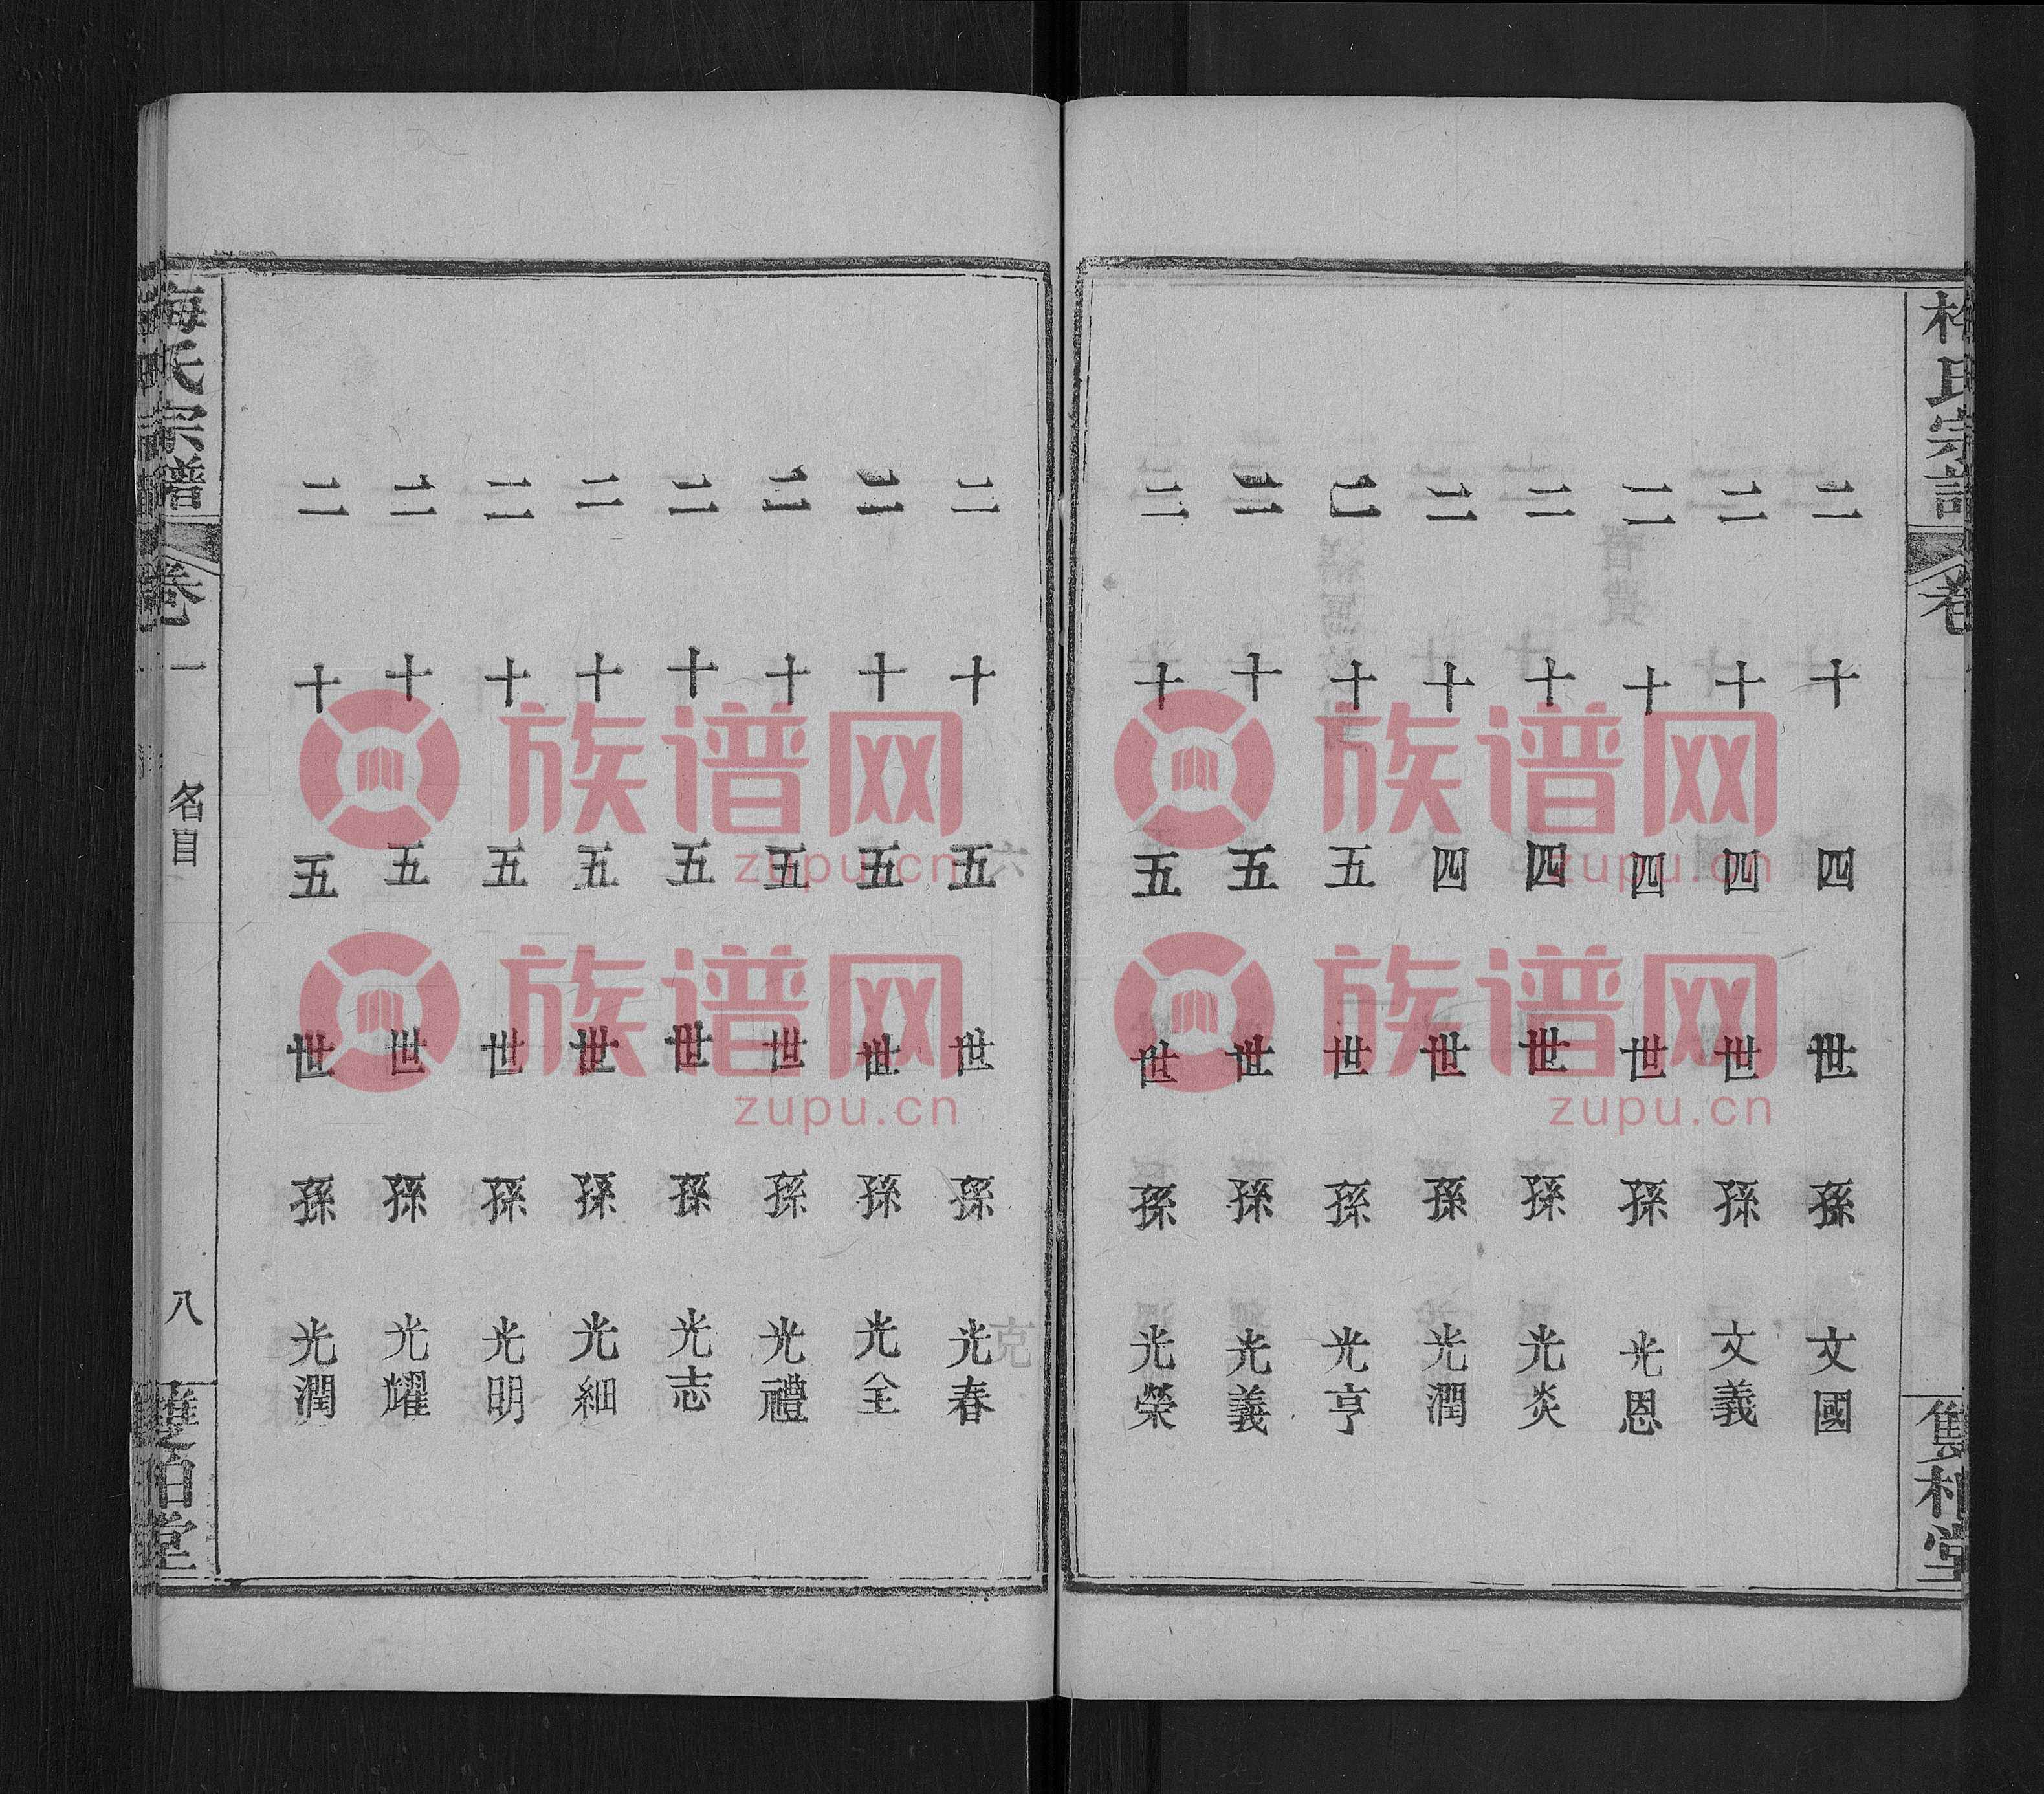 梅氏宗譜
卷
雙柏堂
二十四世孫 文國
二十四世孫 文義
二十四世孫 光恩
二十四世孫 光炎
二十四世孫 光潤
二十五世孫 光亨
二十五世孫 光義
二十五世孫 光榮
二十五世孫 光春
二十五世孫 光全
二十五世孫 光禮
二十五世孫 光志
二十五世孫 光細
二十五世孫 光明
二十五世孫 光耀
二十五世孫 光潤
梅氏宗譜
卷一
名目
八
雙柏堂
族谱网
zupu.cn
族谱网
zupu.cn
族谱网
zupu.cn
族谱网
zupu.cn